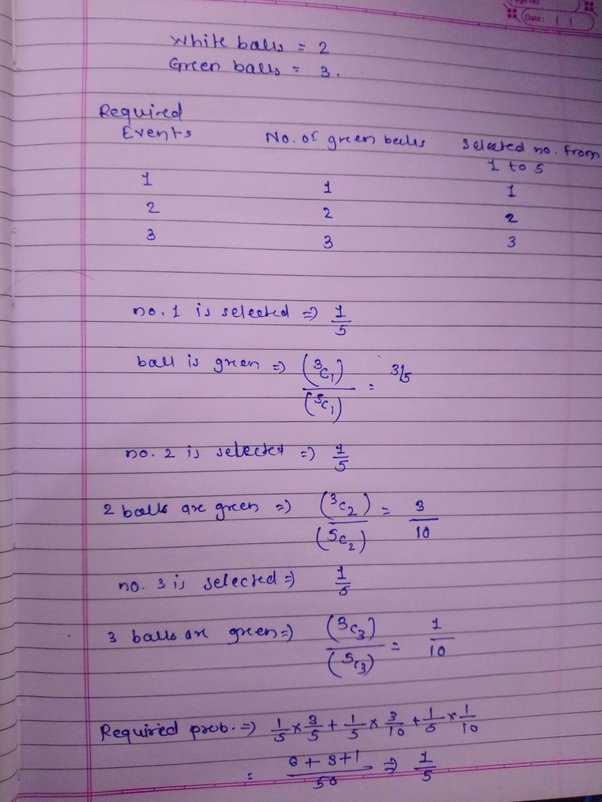 Page No.
Date:
White balls = 2
Green balls = 3.
Required Events No. of green balls Selected no. from 1 to 5
1 1 1
2 2 2
3 3 3
no. 1 is selected => 1/5
ball is green => (³C₁)/(⁵C₁) = 3/5
no. 2 is selected => 1/5
2 balls are green => (³C₂)/(⁵C₂) = 3/10
no. 3 is selected => 1/5
3 balls are green => (³C₃)/(⁵C₃) = 1/10
Required prob. => 1/5 × 3/5 + 1/5 × 3/10 + 1/5 × 1/10
= 6 + 3 + 1/50 => 1/5